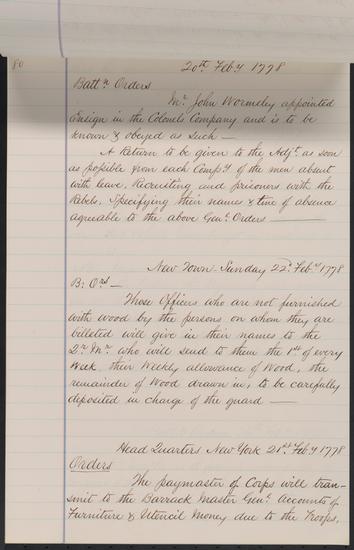 80
20th Feby 1778
Battn Orders
Mr John Wormely appointed
Ensign in the Colonels Company and is to be
known & obeyed as such —
A Return to be given to the Adjt as soon
as possible from each Compy of the men absent
with leave, Recruiting and prisoners with the
Rebels, Specifying their names & time of absence
agreeable to the above Genl Orders —
New Town Sunday 22d Feby 1778
B: Ors —
Those Officers who are not furnished
with wood by the persons on whom they are
billeted will give in their names to the
Qr Mr who will send to them the 1st of every
Week, their Weekly allowance of Wood, the
remainder of Wood drawn in, to be carefully
deposited in charge of the guard —
Head Quarters New York 21st Feby 1778
Orders
The paymaster of Corps will tran-
smit to the Barrack Master Genl Accounts of
Furniture & Utencil Money due to the Troops,